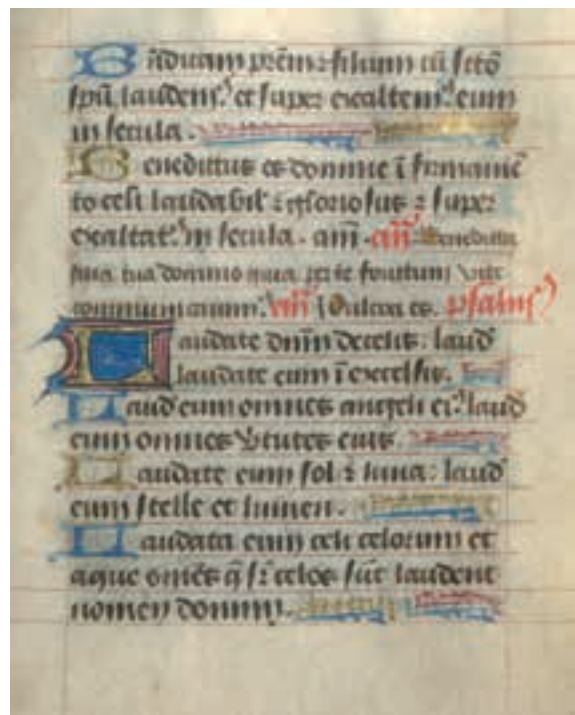 Bñdicam pr̄em ⁊ filium cū sc̄tō
spū laudem⁹ et super exaltem⁹ eum
in secula.
Benedictus es domine ī firmamē
to celi laudabil' ⁊ gloriosus ⁊ super
exaltat⁹ in secula. am̄. an̄ Benedicta
filia tua domino quia per te fructum vite
communicam⁹. an̄ Pulcra es. psalm⁹
Laudate dn̄m de celis: laud
laudate eum ī excelsis.
Laud eum omnes angeli ei⁹ laud
eum omnes v̄tutes eius.
Laudate eum sol ⁊ luna: laud
eum stelle et lumen.
Laudate eum celi celorum et
aque omēs q̄ sr̄ celos sūt laudent
nomen domini.